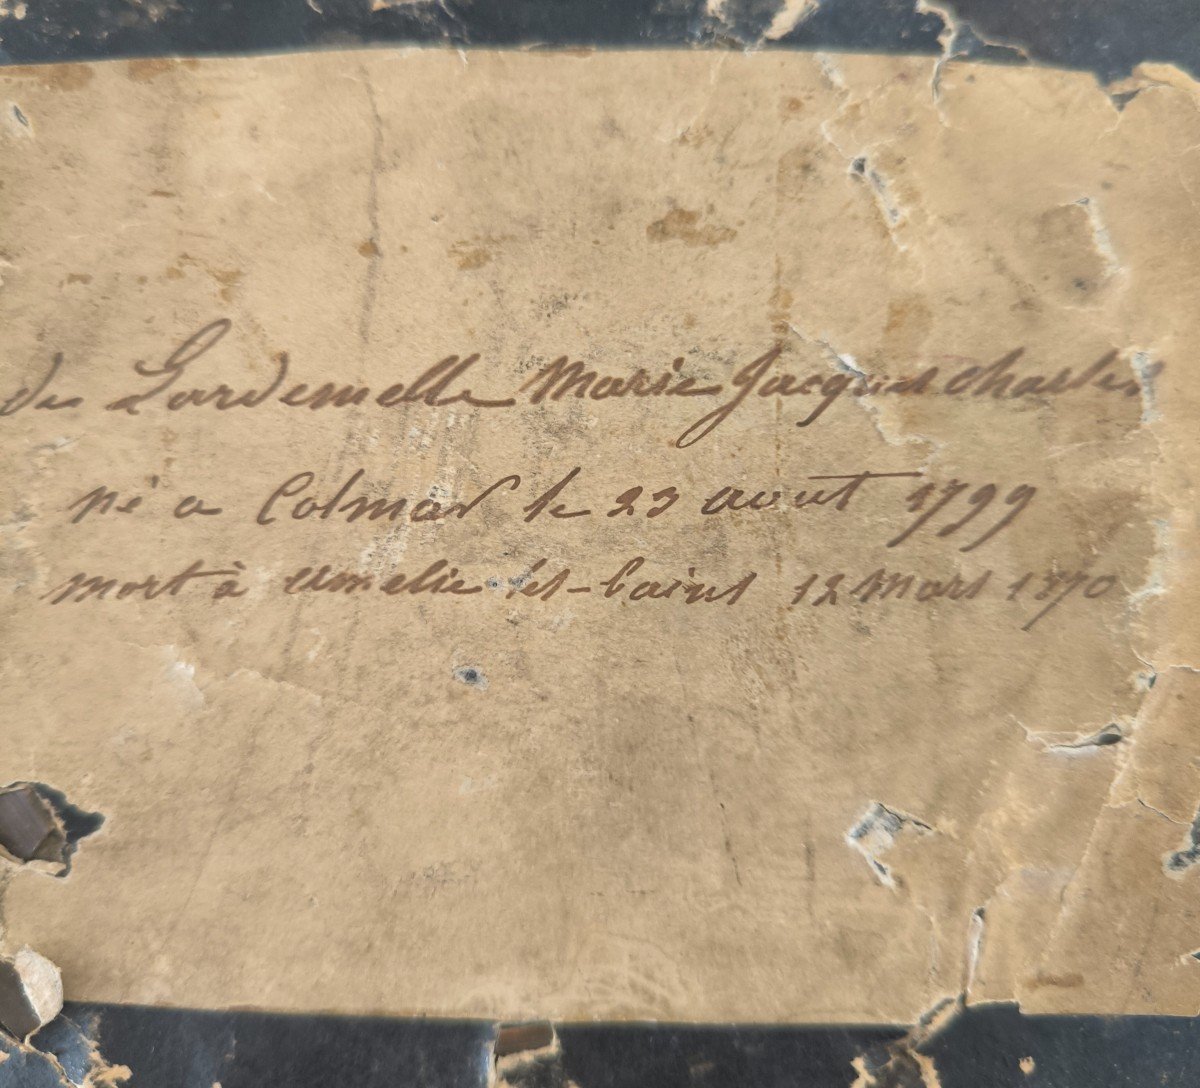 de Lardemelle Marie Jacques Charles
né a Colmar le 23 aout 1799
mort à Amelie les-bains 12 Mars 1870